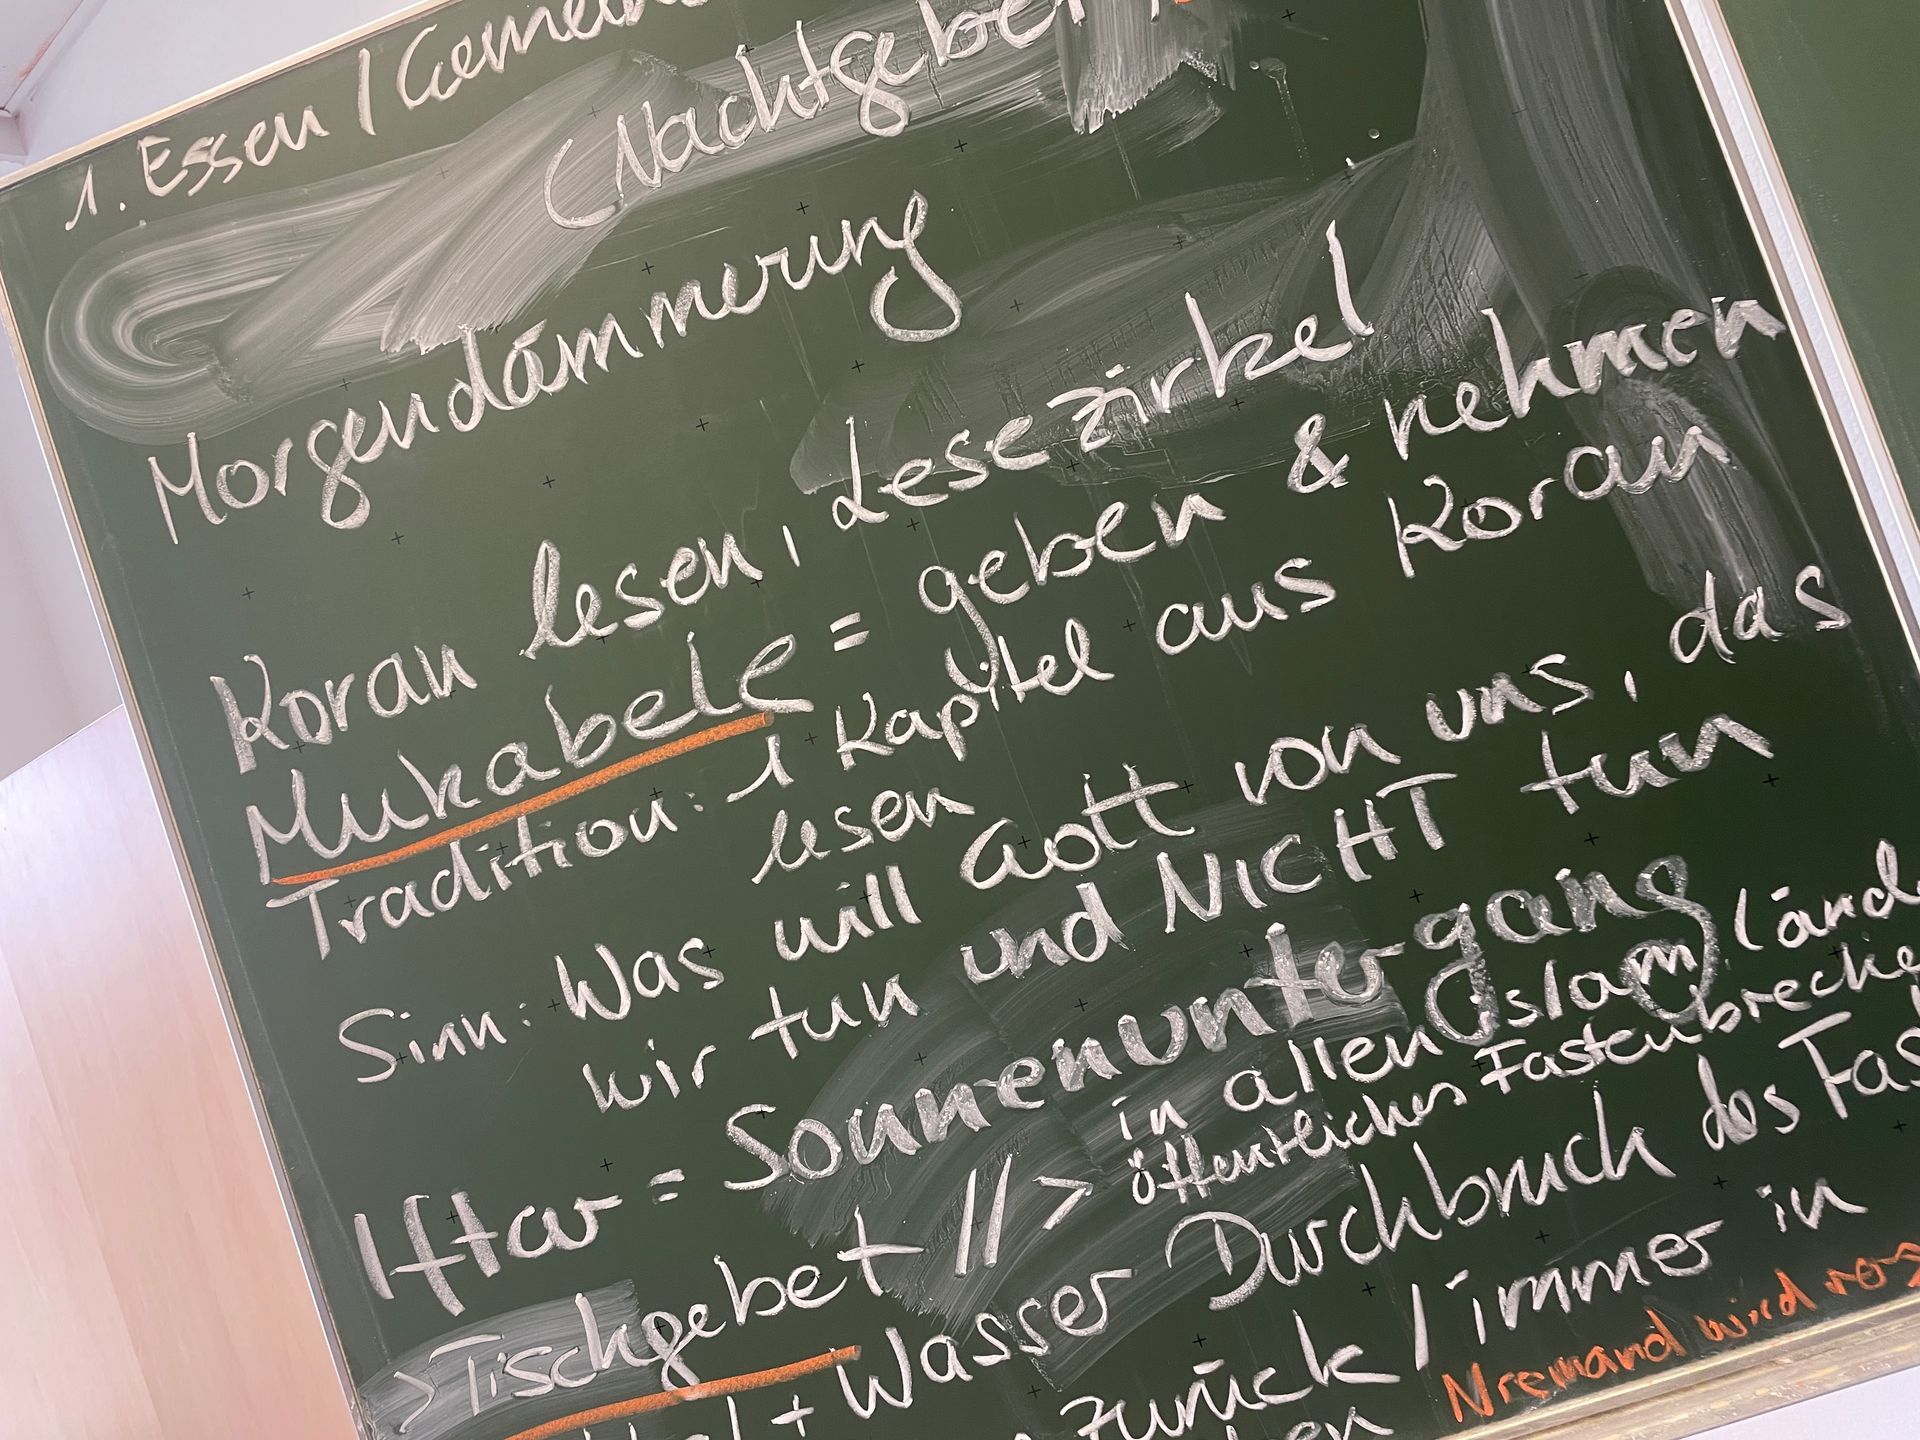 1. Essen /
(Nachtgebet
Morgendämmerung
Koran lesen, Lesezirkel
Mukabele = geben & nehmen
Tradition: 1 Kapitel aus Koran
lesen
Sinn: Was will Gott von uns, das
wir tun und NICHT tun
Iftar = Sonnenuntergang
in allen Islam.
öffentliches
>Tischgebet // >
+ Wasser Durchbruch des
zurück / immer in
Niemand wird